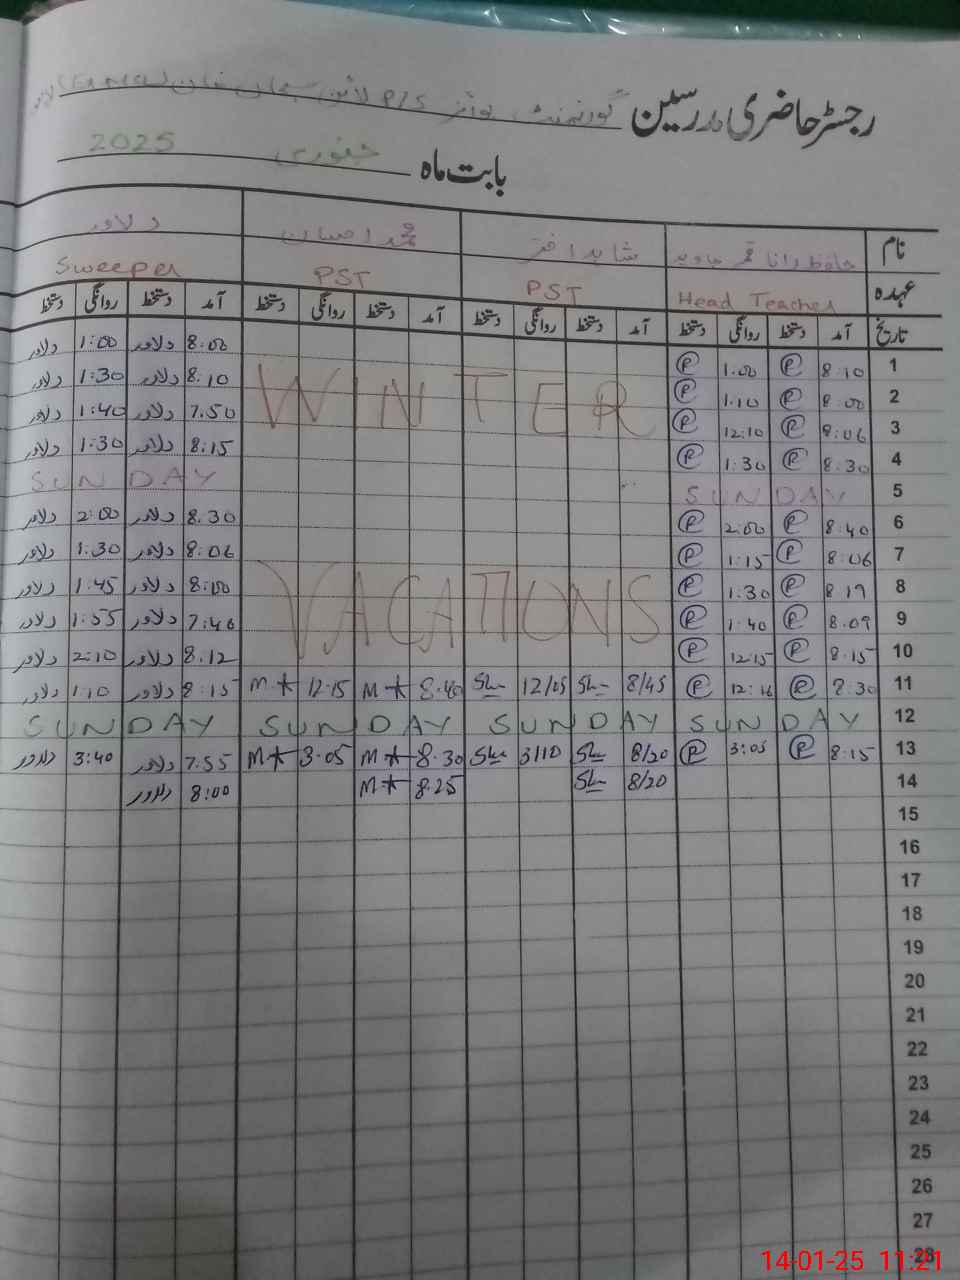 رجسٹر حاضری مدرسین گورنمنٹ بوائز P/S لائن سبحان خان
بابت ماہ جنوری 2025
نام حافظ رانا قمر جاوید شاہد اختر محمد احسان دلاور
عہدہ Head Teacher PST PST Sweeper
تاریخ آمد دستخط روانگی دستخط آمد دستخط روانگی دستخط آمد دستخط روانگی دستخط آمد دستخط روانگی دستخط
1 8:10 P 1:00 P 8:00 دلاور 1:00 دلاور
2 8:00 P 1:10 P 8:10 دلاور 1:30 دلاور
WINTER
3 8:06 P 12:10 P 7.50 دلاور 1:40 دلاور
4 8:30 P 1:30 P 8:15 دلاور 1:30 دلاور
5 SUNDAY SUNDAY
6 8:40 P 2:00 P 8.30 دلاور 2:00 دلاور
7 8:06 P 1:15 P 8:06 دلاور 1:30 دلاور
8 8 19 P 1:30 P 8:00 دلاور 1:45 دلاور
VACATIONS
9 8.09 P 1:40 P 7:40 دلاور 1:55 دلاور
10 8.15 P 12:15 P 8.12 دلاور 2:10 دلاور
11 8:30 P 12:16 P 8/45 12/05 8.40 M 12.15 M 8:15 دلاور 1:10 دلاور
12 SUNDAY SUNDAY SUNDAY SUNDAY
13 8:15 P 3:05 P 8/20 3/10 8.30 M 3.05 M 7:55 دلاور 3:40 دلاور
14 8/20 8.25 M 8:00 دلاور
15
16
17
18
19
20
21
22
23
24
25
26
27
28
14-01-25 11:21